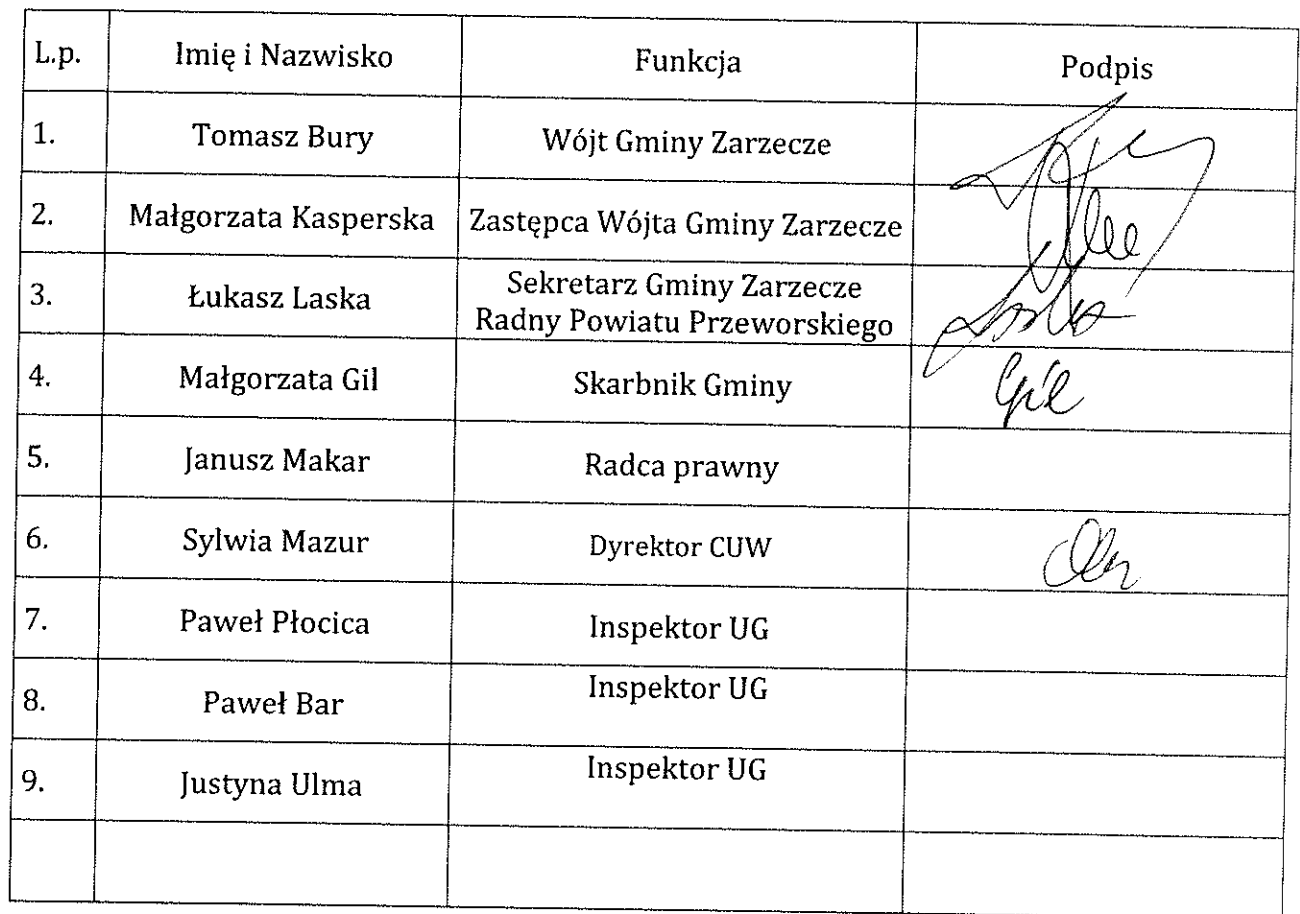 L.p. Imię i Nazwisko Funkcja Podpis
1. Tomasz Bury Wójt Gminy Zarzecze
2. Małgorzata Kasperska Zastępca Wójta Gminy Zarzecze
3. Łukasz Laska Sekretarz Gminy Zarzecze
Radny Powiatu Przeworskiego
4. Małgorzata Gil Skarbnik Gminy Gil
5. Janusz Makar Radca prawny
6. Sylwia Mazur Dyrektor CUW
7. Paweł Płocica Inspektor UG
8. Paweł Bar Inspektor UG
9. Justyna Ulma Inspektor UG